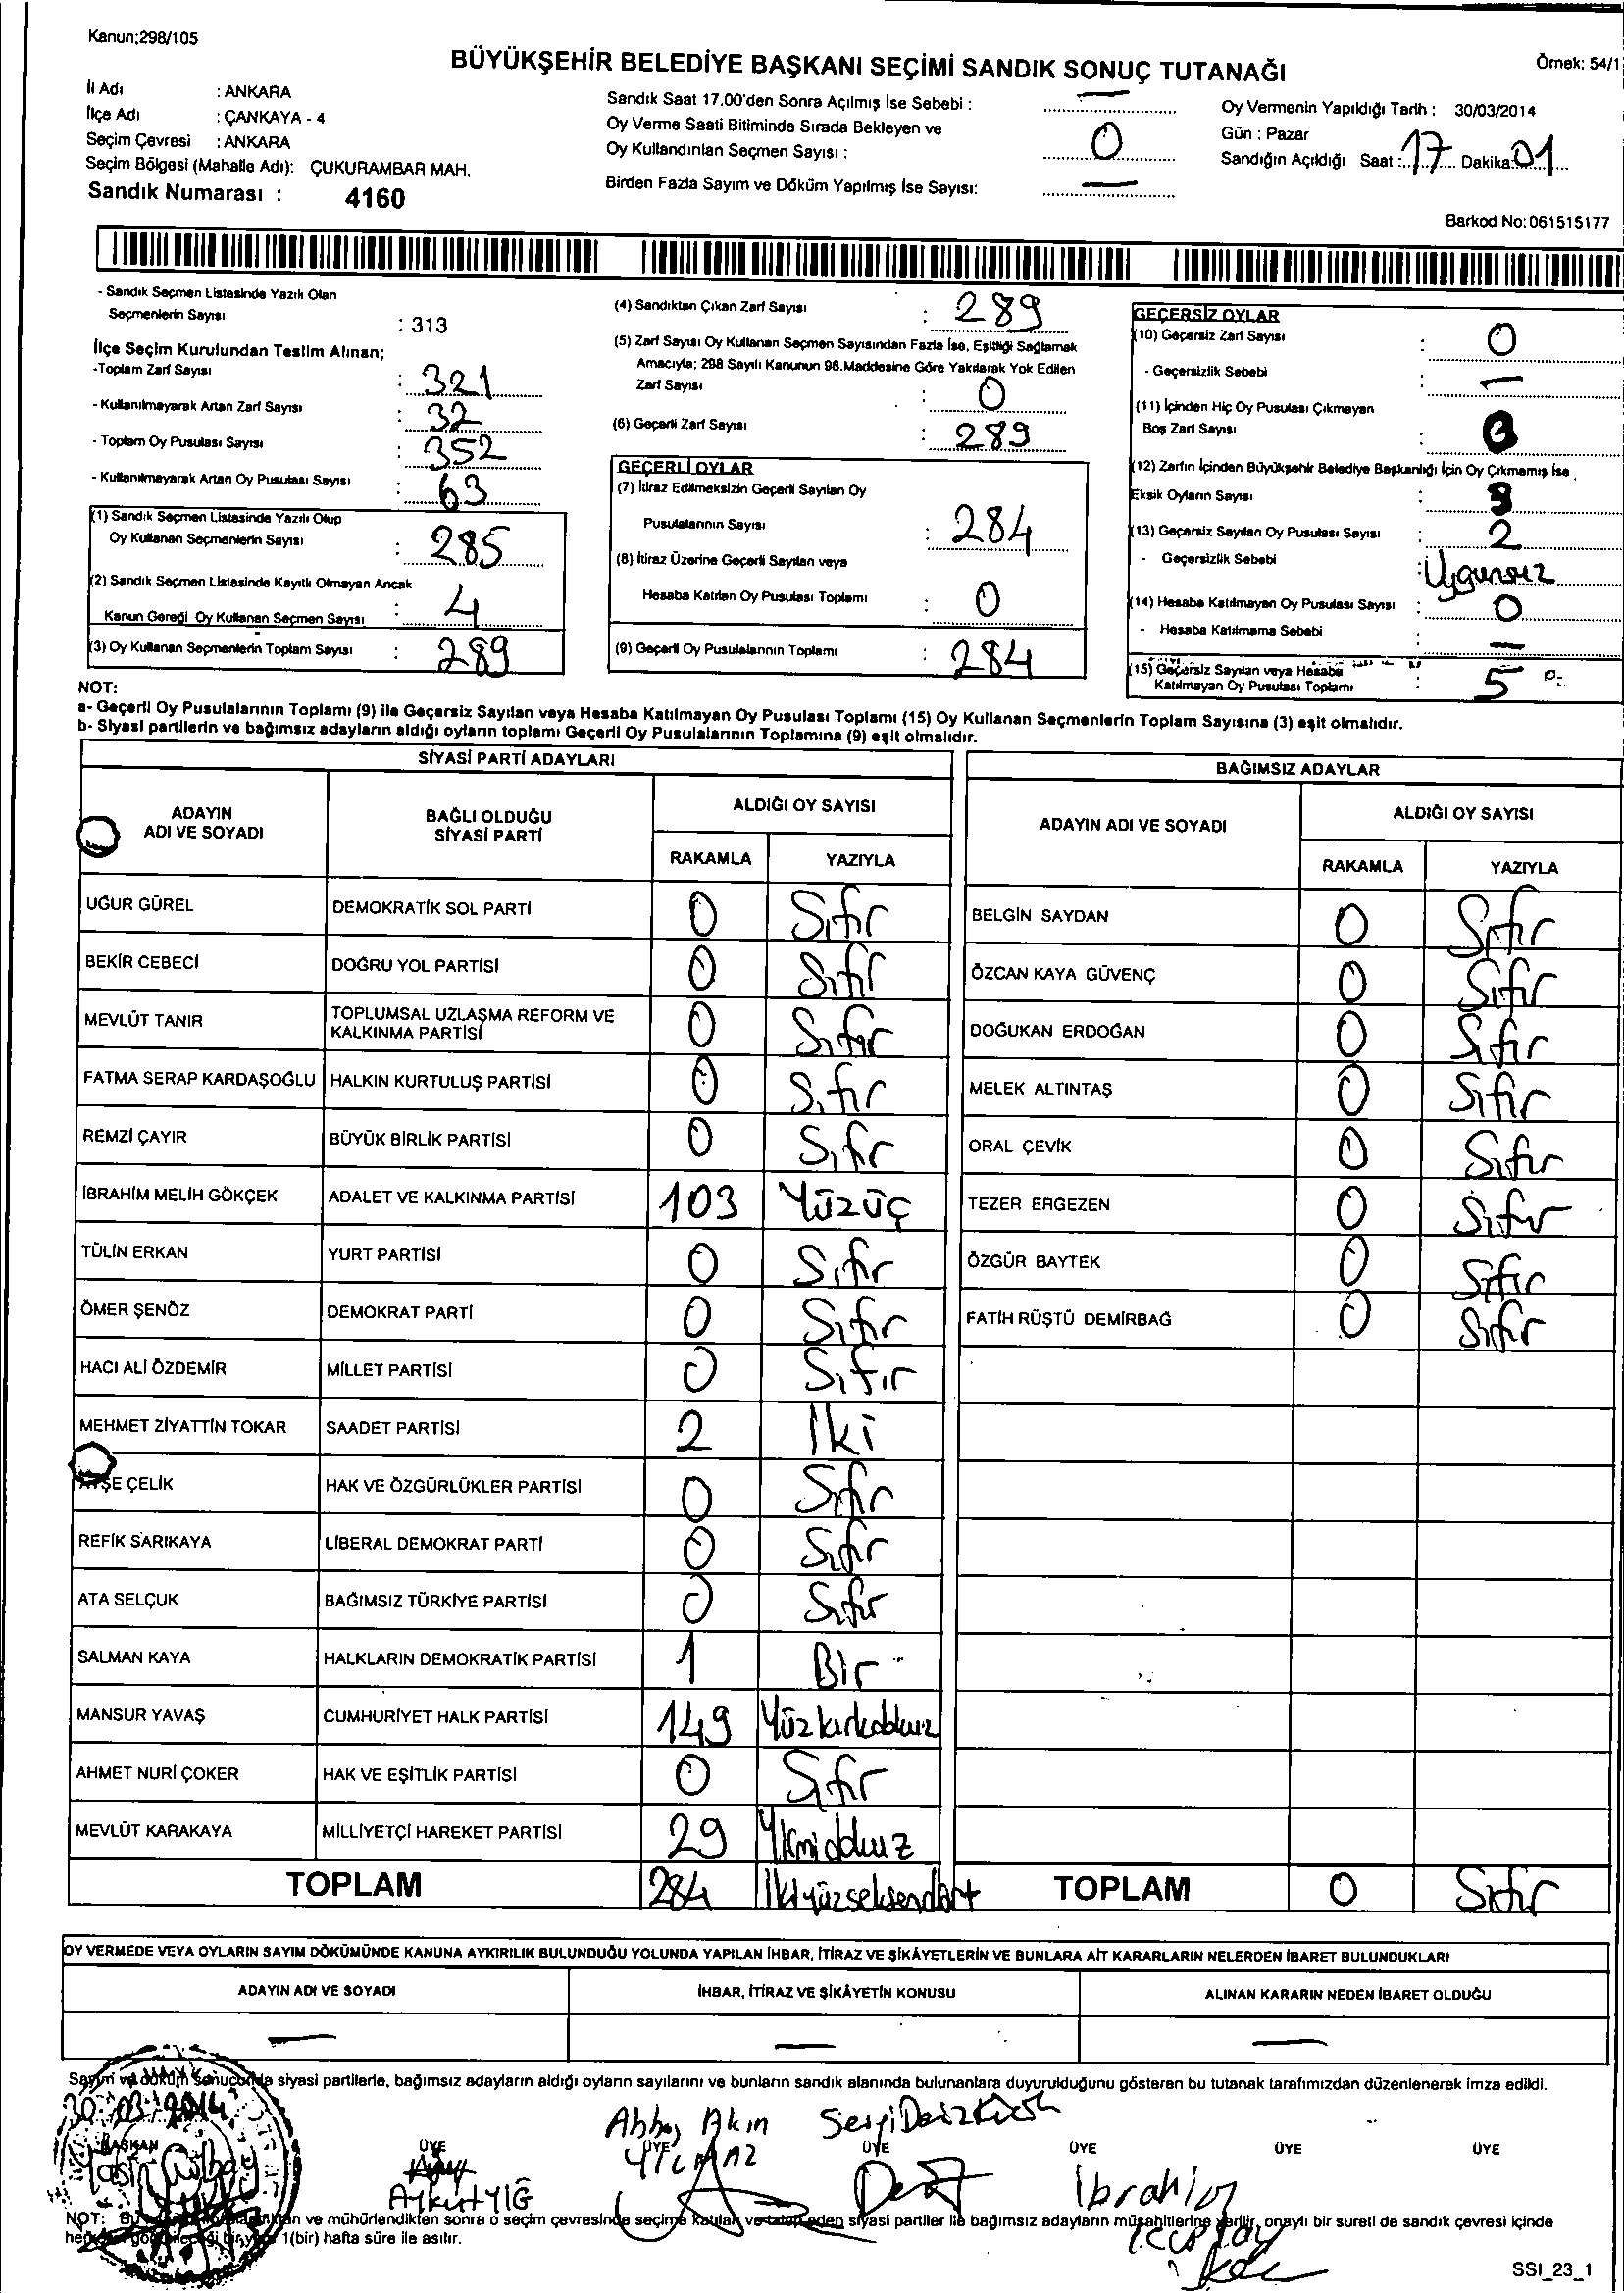 Kanun;298/105
BÜYÜKŞEHİR BELEDİYE BAŞKANI SEÇİMİ SANDIK SONUÇ TUTANAĞI
Örnek: 54/1
İl Adı : ANKARA
İlçe Adı : ÇANKAYA - 4
Seçim Çevresi : ANKARA
Seçim Bölgesi (Mahalle Adı): ÇUKURAMBAR MAH.
Sandık Numarası : 4160
Sandık Saat 17.00'den Sonra Açılmış İse Sebebi : —
Oy Verme Saati Bitiminde Sırada Bekleyen ve
Oy Kullandırılan Seçmen Sayısı : 0
Birden Fazla Sayım ve Döküm Yapılmış İse Sayısı: —
Oy Vermenin Yapıldığı Tarih : 30/03/2014
Gün : Pazar
Sandığın Açıldığı Saat : 17 Dakika: 01
Barkod No: 061515177
- Sandık Seçmen Listesinde Yazılı Olan
Seçmenlerin Sayısı : 313
İlçe Seçim Kurulundan Teslim Alınan;
-Toplam Zarf Sayısı : 321
- Kullanılmayarak Artan Zarf Sayısı : 32
- Toplam Oy Pusulası Sayısı : 352
- Kullanılmayarak Artan Oy Pusulası Sayısı : 63
(1) Sandık Seçmen Listesinde Yazılı Olup
Oy Kullanan Seçmenlerin Sayısı : 285
(2) Sandık Seçmen Listesinde Kayıtlı Olmayan Ancak
Kanun Gereği Oy Kullanan Seçmen Sayısı : 4
(3) Oy Kullanan Seçmenlerin Toplam Sayısı : 289
(4) Sandıktan Çıkan Zarf Sayısı : 289
(5) Zarf Sayısı Oy Kullanan Seçmen Sayısından Fazla İse, Eşitliği Sağlamak
Amacıyla; 298 Sayılı Kanunun 98.Maddesine Göre Yakılarak Yok Edilen
Zarf Sayısı : 0
(6) Geçerli Zarf Sayısı : 289
GEÇERLİ OYLAR
(7) İtiraz Edilmeksizin Geçerli Sayılan Oy
Pusulalarının Sayısı : 284
(8) İtiraz Üzerine Geçerli Sayılan veya
Hesaba Katılan Oy Pusulası Toplamı : 0
(9) Geçerli Oy Pusulalarının Toplamı : 284
GEÇERSİZ OYLAR
(10) Geçersiz Zarf Sayısı : 0
- Geçersizlik Sebebi : —
(11) İçinden Hiç Oy Pusulası Çıkmayan
Boş Zarf Sayısı :
(12) Zarfın İçinden Büyükşehir Belediye Başkanlığı İçin Oy Çıkmamış İse
Eksik Oyların Sayısı : 3
(13) Geçersiz Sayılan Oy Pusulası Sayısı : 2
- Geçersizlik Sebebi : Uygunsuz
(14) Hesaba Katılmayan Oy Pusulası Sayısı : 0
- Hesaba Katılmama Sebebi : —
(15) Geçersiz Sayılan veya Hesaba
Katılmayan Oy Pusulası Toplamı : 5
NOT:
a- Geçerli Oy Pusulalarının Toplamı (9) ile Geçersiz Sayılan veya Hesaba Katılmayan Oy Pusulası Toplamı (15) Oy Kullanan Seçmenlerin Toplam Sayısına (3) eşit olmalıdır.
b- Siyasi partilerin ve bağımsız adayların aldığı oyların toplamı Geçerli Oy Pusulalarının Toplamına (9) eşit olmalıdır.
SİYASİ PARTİ ADAYLARI
ADAYIN ADI VE SOYADI
BAĞLI OLDUĞU SİYASİ PARTİ
ALDIĞI OY SAYISI
RAKAMLA YAZIYLA
UĞUR GÜREL DEMOKRATİK SOL PARTİ 0 Sıfır
BEKİR CEBECİ DOĞRU YOL PARTİSİ 0 Sıfır
MEVLÜT TANIR TOPLUMSAL UZLAŞMA REFORM VE KALKINMA PARTİSİ 0 Sıfır
FATMA SERAP KARDAŞOĞLU HALKIN KURTULUŞ PARTİSİ 0 Sıfır
REMZİ ÇAYIR BÜYÜK BİRLİK PARTİSİ 0 Sıfır
İBRAHİM MELİH GÖKÇEK ADALET VE KALKINMA PARTİSİ 103 Yüzüç
TÜLİN ERKAN YURT PARTİSİ 0 Sıfır
ÖMER ŞENÖZ DEMOKRAT PARTİ 0 Sıfır
HACI ALİ ÖZDEMİR MİLLET PARTİSİ 0 Sıfır
MEHMET ZİYATTİN TOKAR SAADET PARTİSİ 2 İki
AYŞE ÇELİK HAK VE ÖZGÜRLÜKLER PARTİSİ 0 Sıfır
REFİK SARIKAYA LİBERAL DEMOKRAT PARTİ 0 Sıfır
ATA SELÇUK BAĞIMSIZ TÜRKİYE PARTİSİ 0 Sıfır
SALMAN KAYA HALKLARIN DEMOKRATİK PARTİSİ 1 Bir
MANSUR YAVAŞ CUMHURİYET HALK PARTİSİ 149 Yüzkırkdokuz
AHMET NURİ ÇOKER HAK VE EŞİTLİK PARTİSİ 0 Sıfır
MEVLÜT KARAKAYA MİLLİYETÇİ HAREKET PARTİSİ 29 Yirmidokuz
TOPLAM 284 İkiyüzseksendört
BAĞIMSIZ ADAYLAR
ADAYIN ADI VE SOYADI
ALDIĞI OY SAYISI
RAKAMLA YAZIYLA
BELGİN SAYDAN 0 Sıfır
ÖZCAN KAYA GÜVENÇ 0 Sıfır
DOĞUKAN ERDOĞAN 0 Sıfır
MELEK ALTINTAŞ 0 Sıfır
ORAL ÇEVİK 0 Sıfır
TEZER ERGEZEN 0 Sıfır
ÖZGÜR BAYTEK 0 Sıfır
FATİH RÜŞTÜ DEMİRBAĞ 0 Sıfır
TOPLAM 0 Sıfır
OY VERMEDE VEYA OYLARIN SAYIM DÖKÜMÜNDE KANUNA AYKIRILIK BULUNDUĞU YOLUNDA YAPILAN İHBAR, İTİRAZ VE ŞİKÂYETLERİN VE BUNLARA AİT KARARLARIN NELERDEN İBARET BULUNDUKLARI
ADAYIN ADI VE SOYADI İHBAR, İTİRAZ VE ŞİKÂYETİN KONUSU ALINAN KARARIN NEDEN İBARET OLDUĞU
— — —
Sayım ve döküm sonucunda siyasi partilerle, bağımsız adayların aldığı oyların sayılarını ve bunların sandık alanında bulunanlara duyurulduğunu gösteren bu tutanak tarafımızdan düzenlenerek imza edildi.
30.03.2014
BAŞKAN ÜYE ÜYE ÜYE ÜYE ÜYE ÜYE
Aykut YİĞ
Abbas Akın YILMAZ
İbrahim
NOT: ve mühürlendikten sonra o seçim çevresinde seçime katılan ve talep eden siyasi partiler ile bağımsız adayların müşahitlerine verilir, onaylı bir sureti de sandık çevresi içinde
1(bir) hafta süre ile asılır.
SSI_23_1